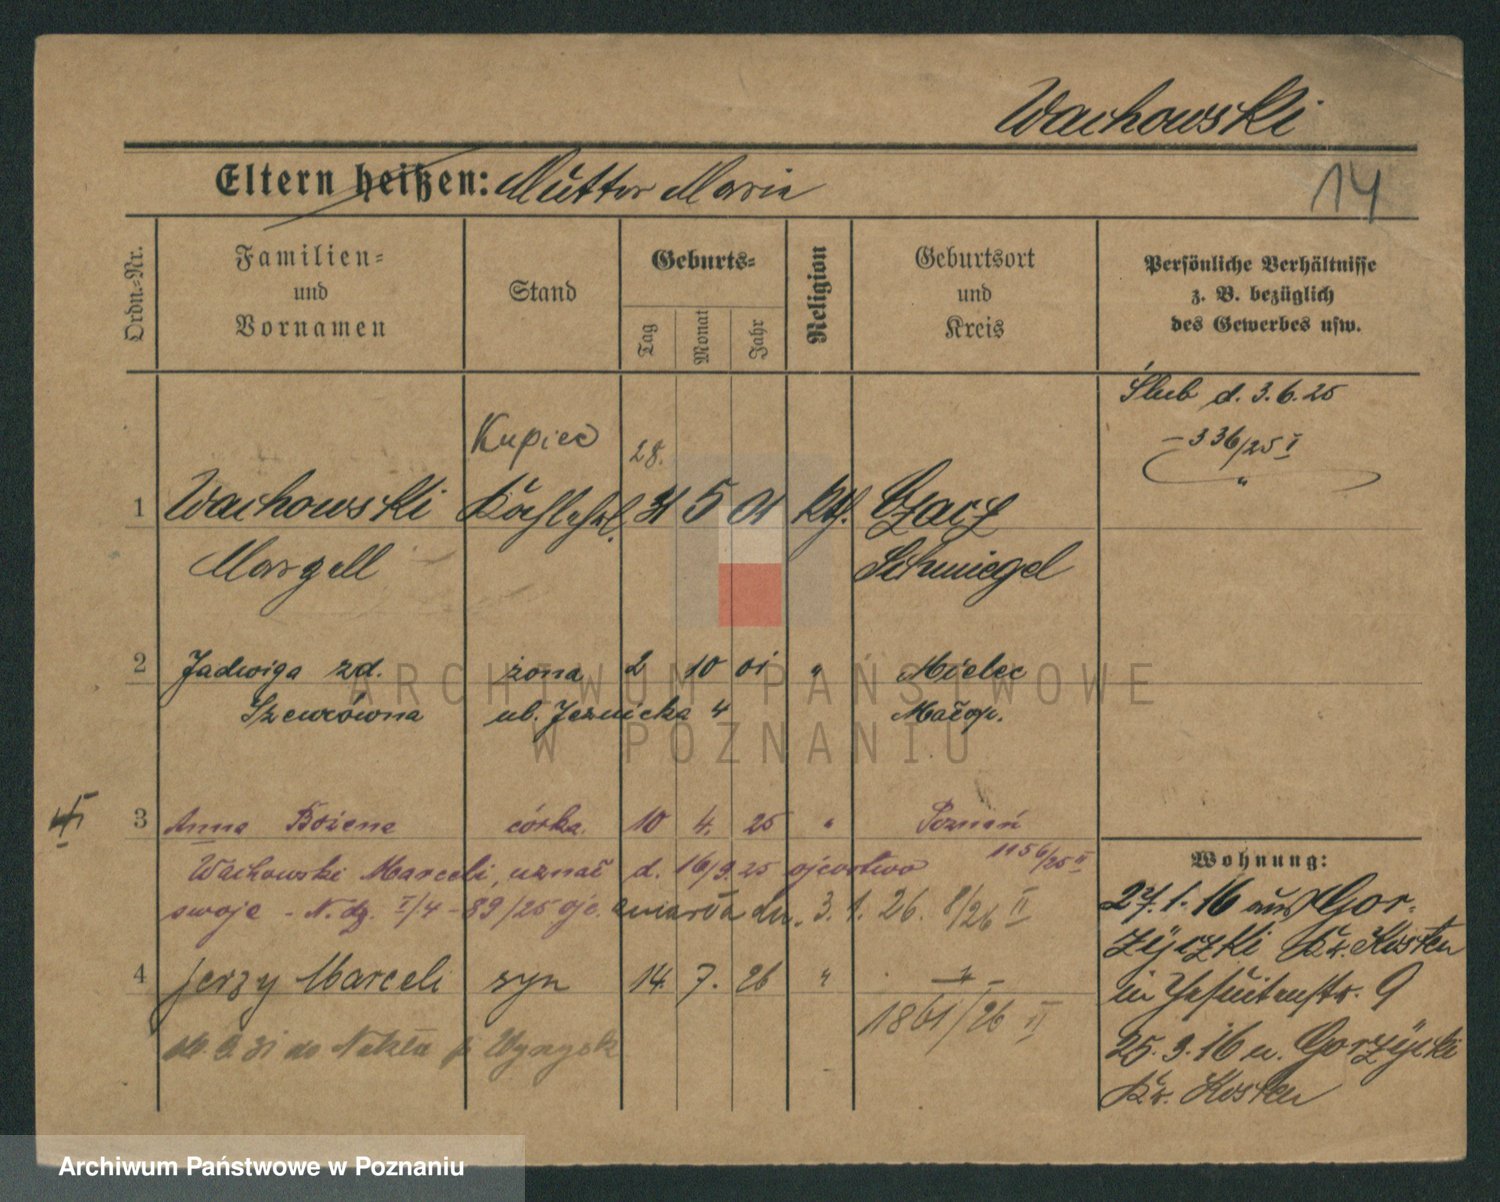 Wachowski
14
Eltern heißen: Mutter Maria
Ordn.-Nr.
Familien-
und
Vornamen
Stand
Geburts-
Tag
Monat
Jahr
Religion
Geburtsort
und
Kreis
Persönliche Verhältnisse
z. B. bezüglich
des Gewerbes usw.
Ślub d. 3.6.25
336/25 I
Kupiec
28.
1 Wachowski 31 5 01 kth. Czacz
Marzell Schmiegel
2 Jadwiga zd. żona 2 10 01 " Mielec
Szewcówna Małop.
3 Anna Bożena córka 10 4. 25 " Poznań
1156/25 II
Wachowski Marceli, uznał d. 16/9.25 ojcostwo
swoje - N. dz. I/4 - 89/25 zmarła dn. 3.1.26. 8/26 II
4 Jerzy Marceli syn 14. 7. 26 "
1861/26 II
31 do Nakła p. Wyrzysk
Wohnung:
27.1.16 aus Gor-
zyczki Kr. Kosten
in Jesuitenstr. 9
25.9.16 n. Gorzÿcki
Kr. Kosten
ARCHIWUM PAŃSTWOWE
W POZNANIU
Archiwum Państwowe w Poznaniu